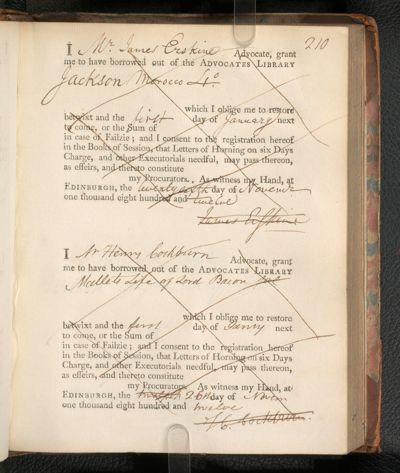 210
I Mr. James Erskine Advocate, grant
me to have borrowed out of the ADVOCATES LIBRARY
Jackson Morocco 4o
which I oblige me to restore
betwixt and the first day of January next
to come, or the Sum of
in case of Failzie; and I consent to the registration hereof
in the Books of Session, that Letters of Horning on six Days
Charge, and other Executorials needful, may pass thereon,
as effeirs, and thereto constitute
my Procurators. As witness my Hand, at
EDINBURGH, the twenty day of Novemr.
one thousand eight hundred and twelve
James Erskine
I Mr Henry Cockburn Advocate, grant
me to have borrowed out of the ADVOCATES LIBRARY
Mallets Life of Lord Bacon
which I oblige me to restore
betwixt and the first day of Janry next
to come, or the Sum of
in case of Failzie; and I consent to the registration hereof
in the Books of Session, that Letters of Horning on six Days
Charge, and other Executorials needful, may pass thereon,
as effeirs, and thereto constitute
my Procurators. As witness my Hand, at
EDINBURGH, the 26th day of Novem
one thousand eight hundred and twelve
H Cockburn